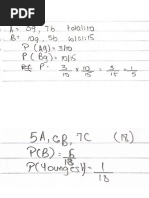 A = 3g, 7b total:10
B = 10g, 5b total:15
P (Ag) = 3/10
P (Bg) = 10/15
P: 3/10 × 10/15 = 3/15 = 1/5
5A, 6B, 7C (18)
P(B) = 6/18
P(Youngest) = 1/18